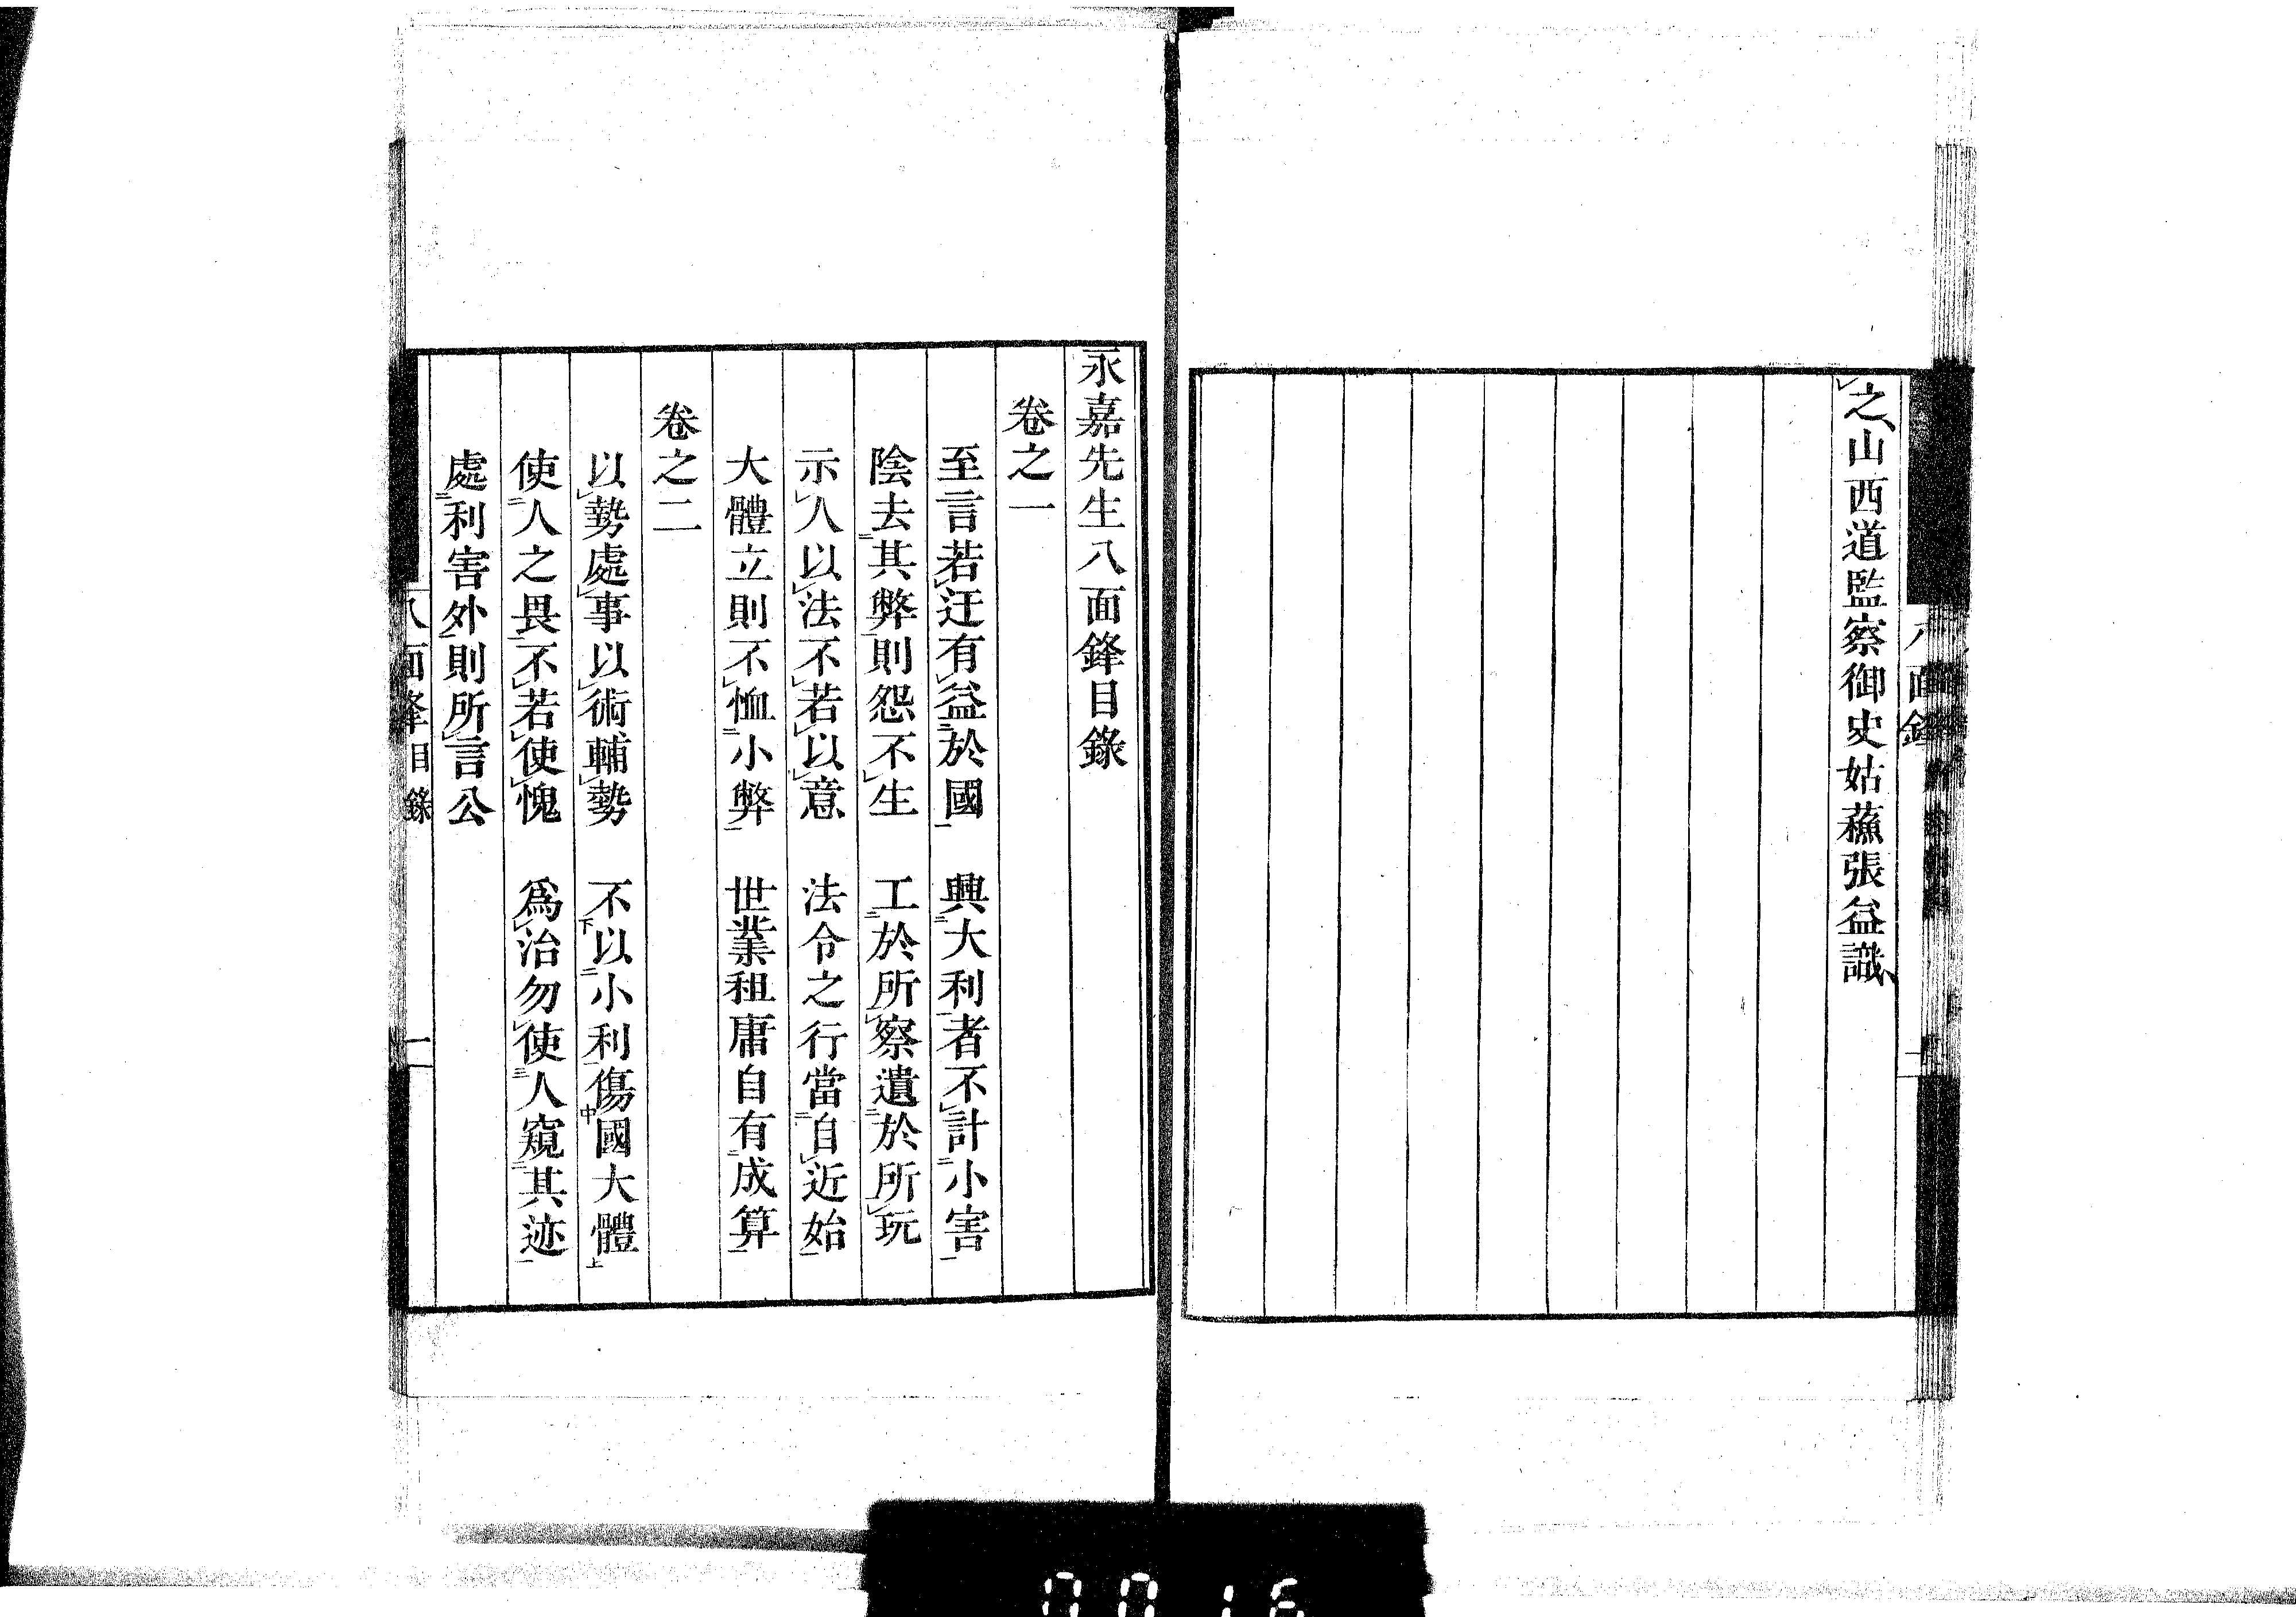 之山西道監察御史姑蘓張益識
永嘉先生八面鋒目錄
卷之一
至言若迂有益於國　興大利者不計小害
陰去其弊則怨不生　工於所察遺於所玩
示人以法不若以意　法令之行當自近始
大體立則不恤小弊　世業租庸自有成算
卷之二
以勢處事以術輔勢　不以小利傷國大體
使人之畏不若使愧　爲治勿使人窺其迹
處利害外則所言公
八面鋒目錄　一